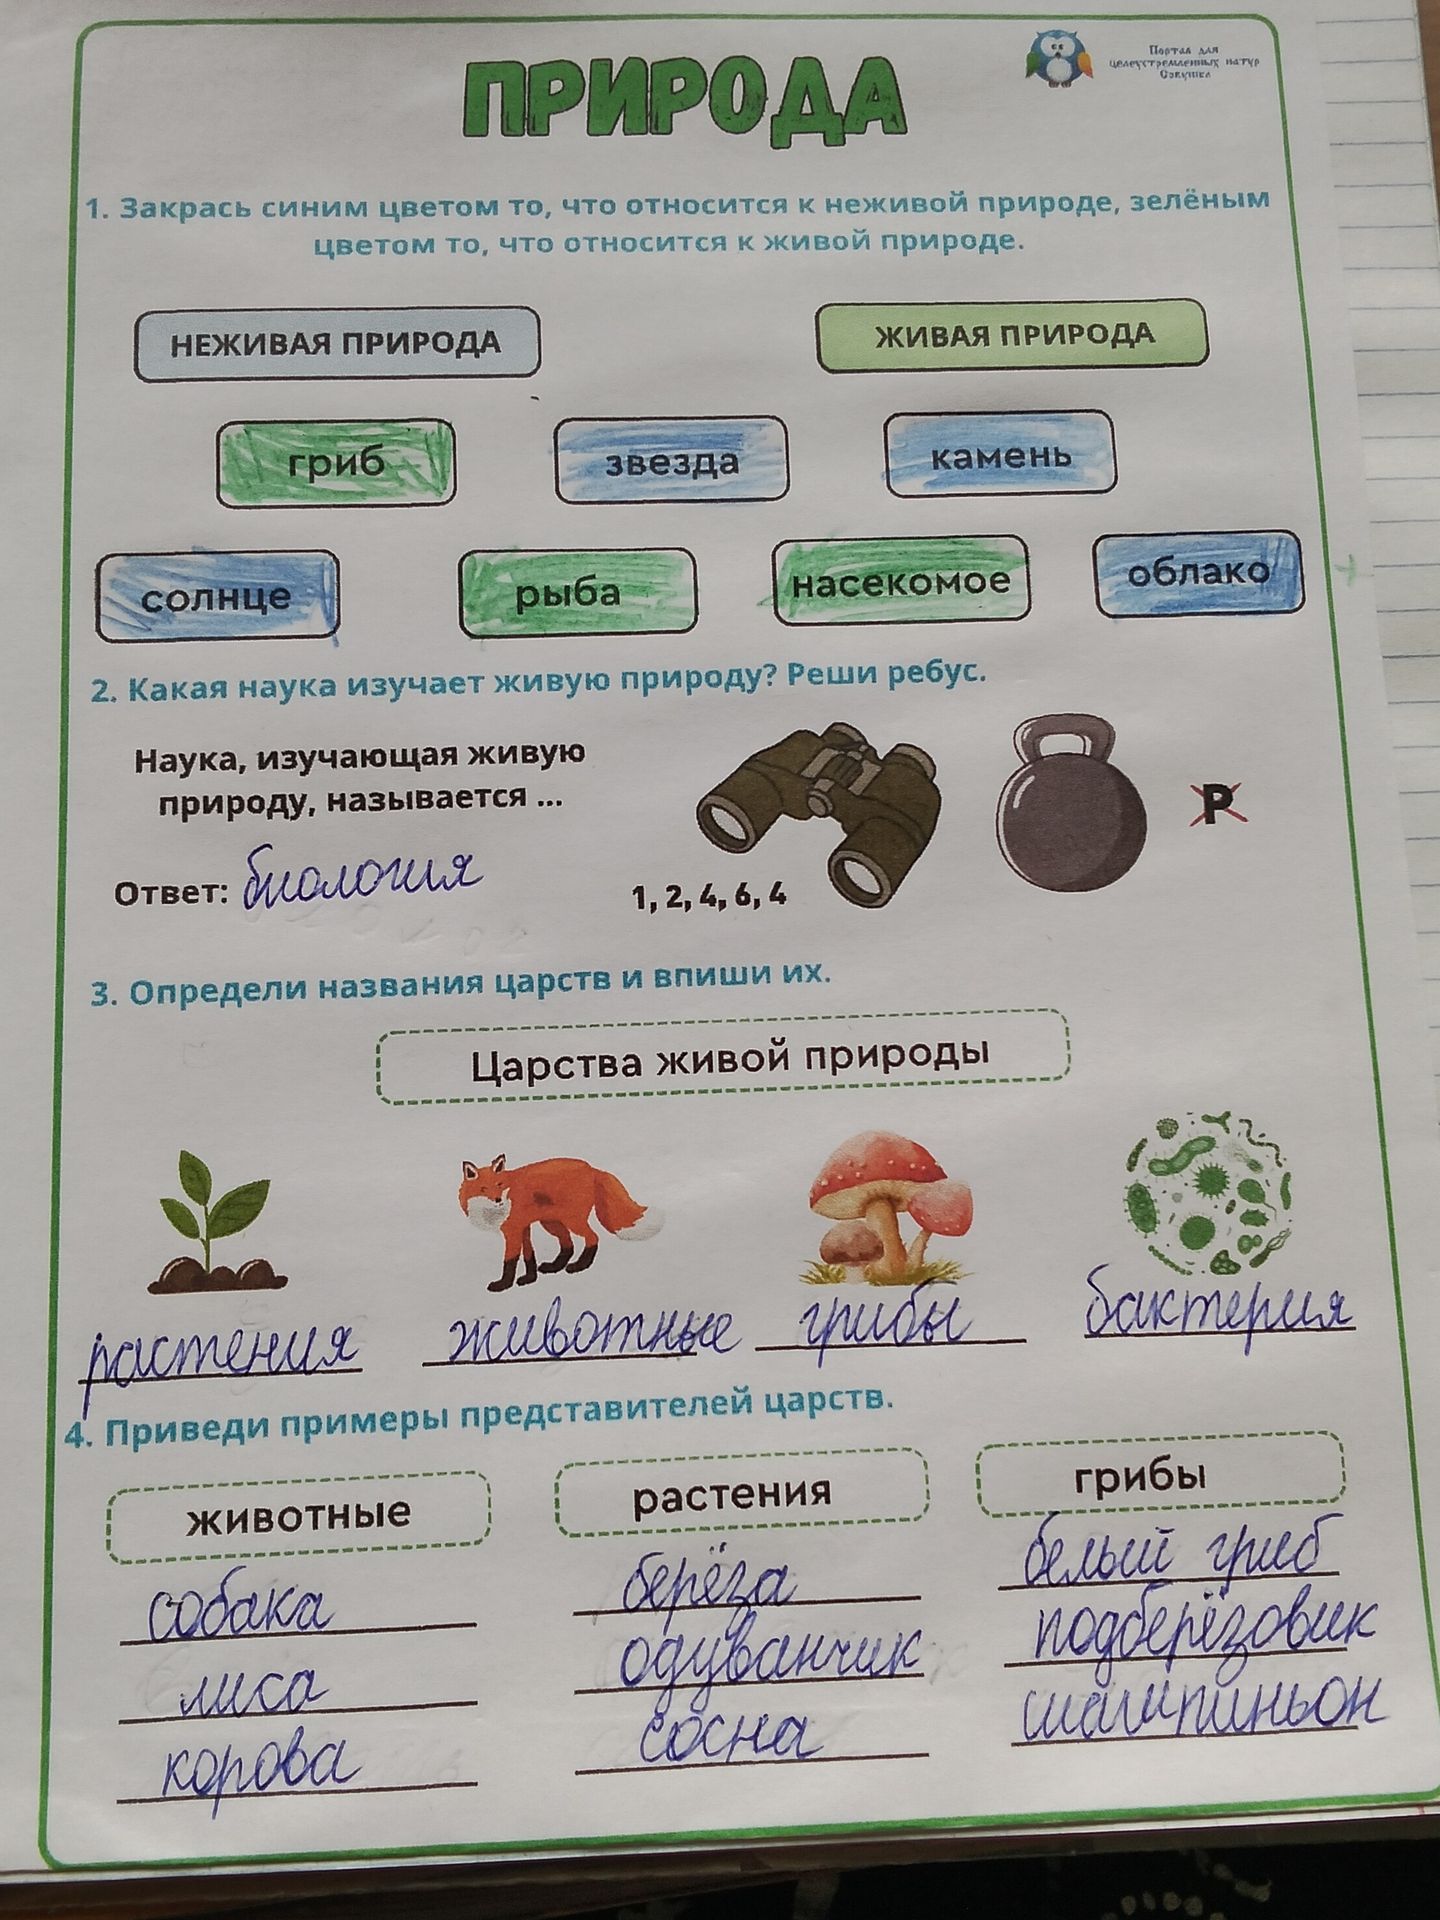 ПРИРОДА
Портал для
целеустремленных натур
Совушка
1. Закрась синим цветом то, что относится к неживой природе, зелёным
цветом то, что относится к живой природе.
НЕЖИВАЯ ПРИРОДА
ЖИВАЯ ПРИРОДА
гриб
звезда
камень
солнце
рыба
насекомое
облако
2. Какая наука изучает живую природу? Реши ребус.
Наука, изучающая живую
природу, называется ...
Ответ: биология
1, 2, 4, 6, 4
Р
3. Определи названия царств и впиши их.
Царства живой природы
растения
животные
грибы
бактерия
4. Приведи примеры представителей царств.
животные
растения
грибы
собака
берёза
белый гриб
лиса
одуванчик
подберёзовик
корова
сосна
шампиньон